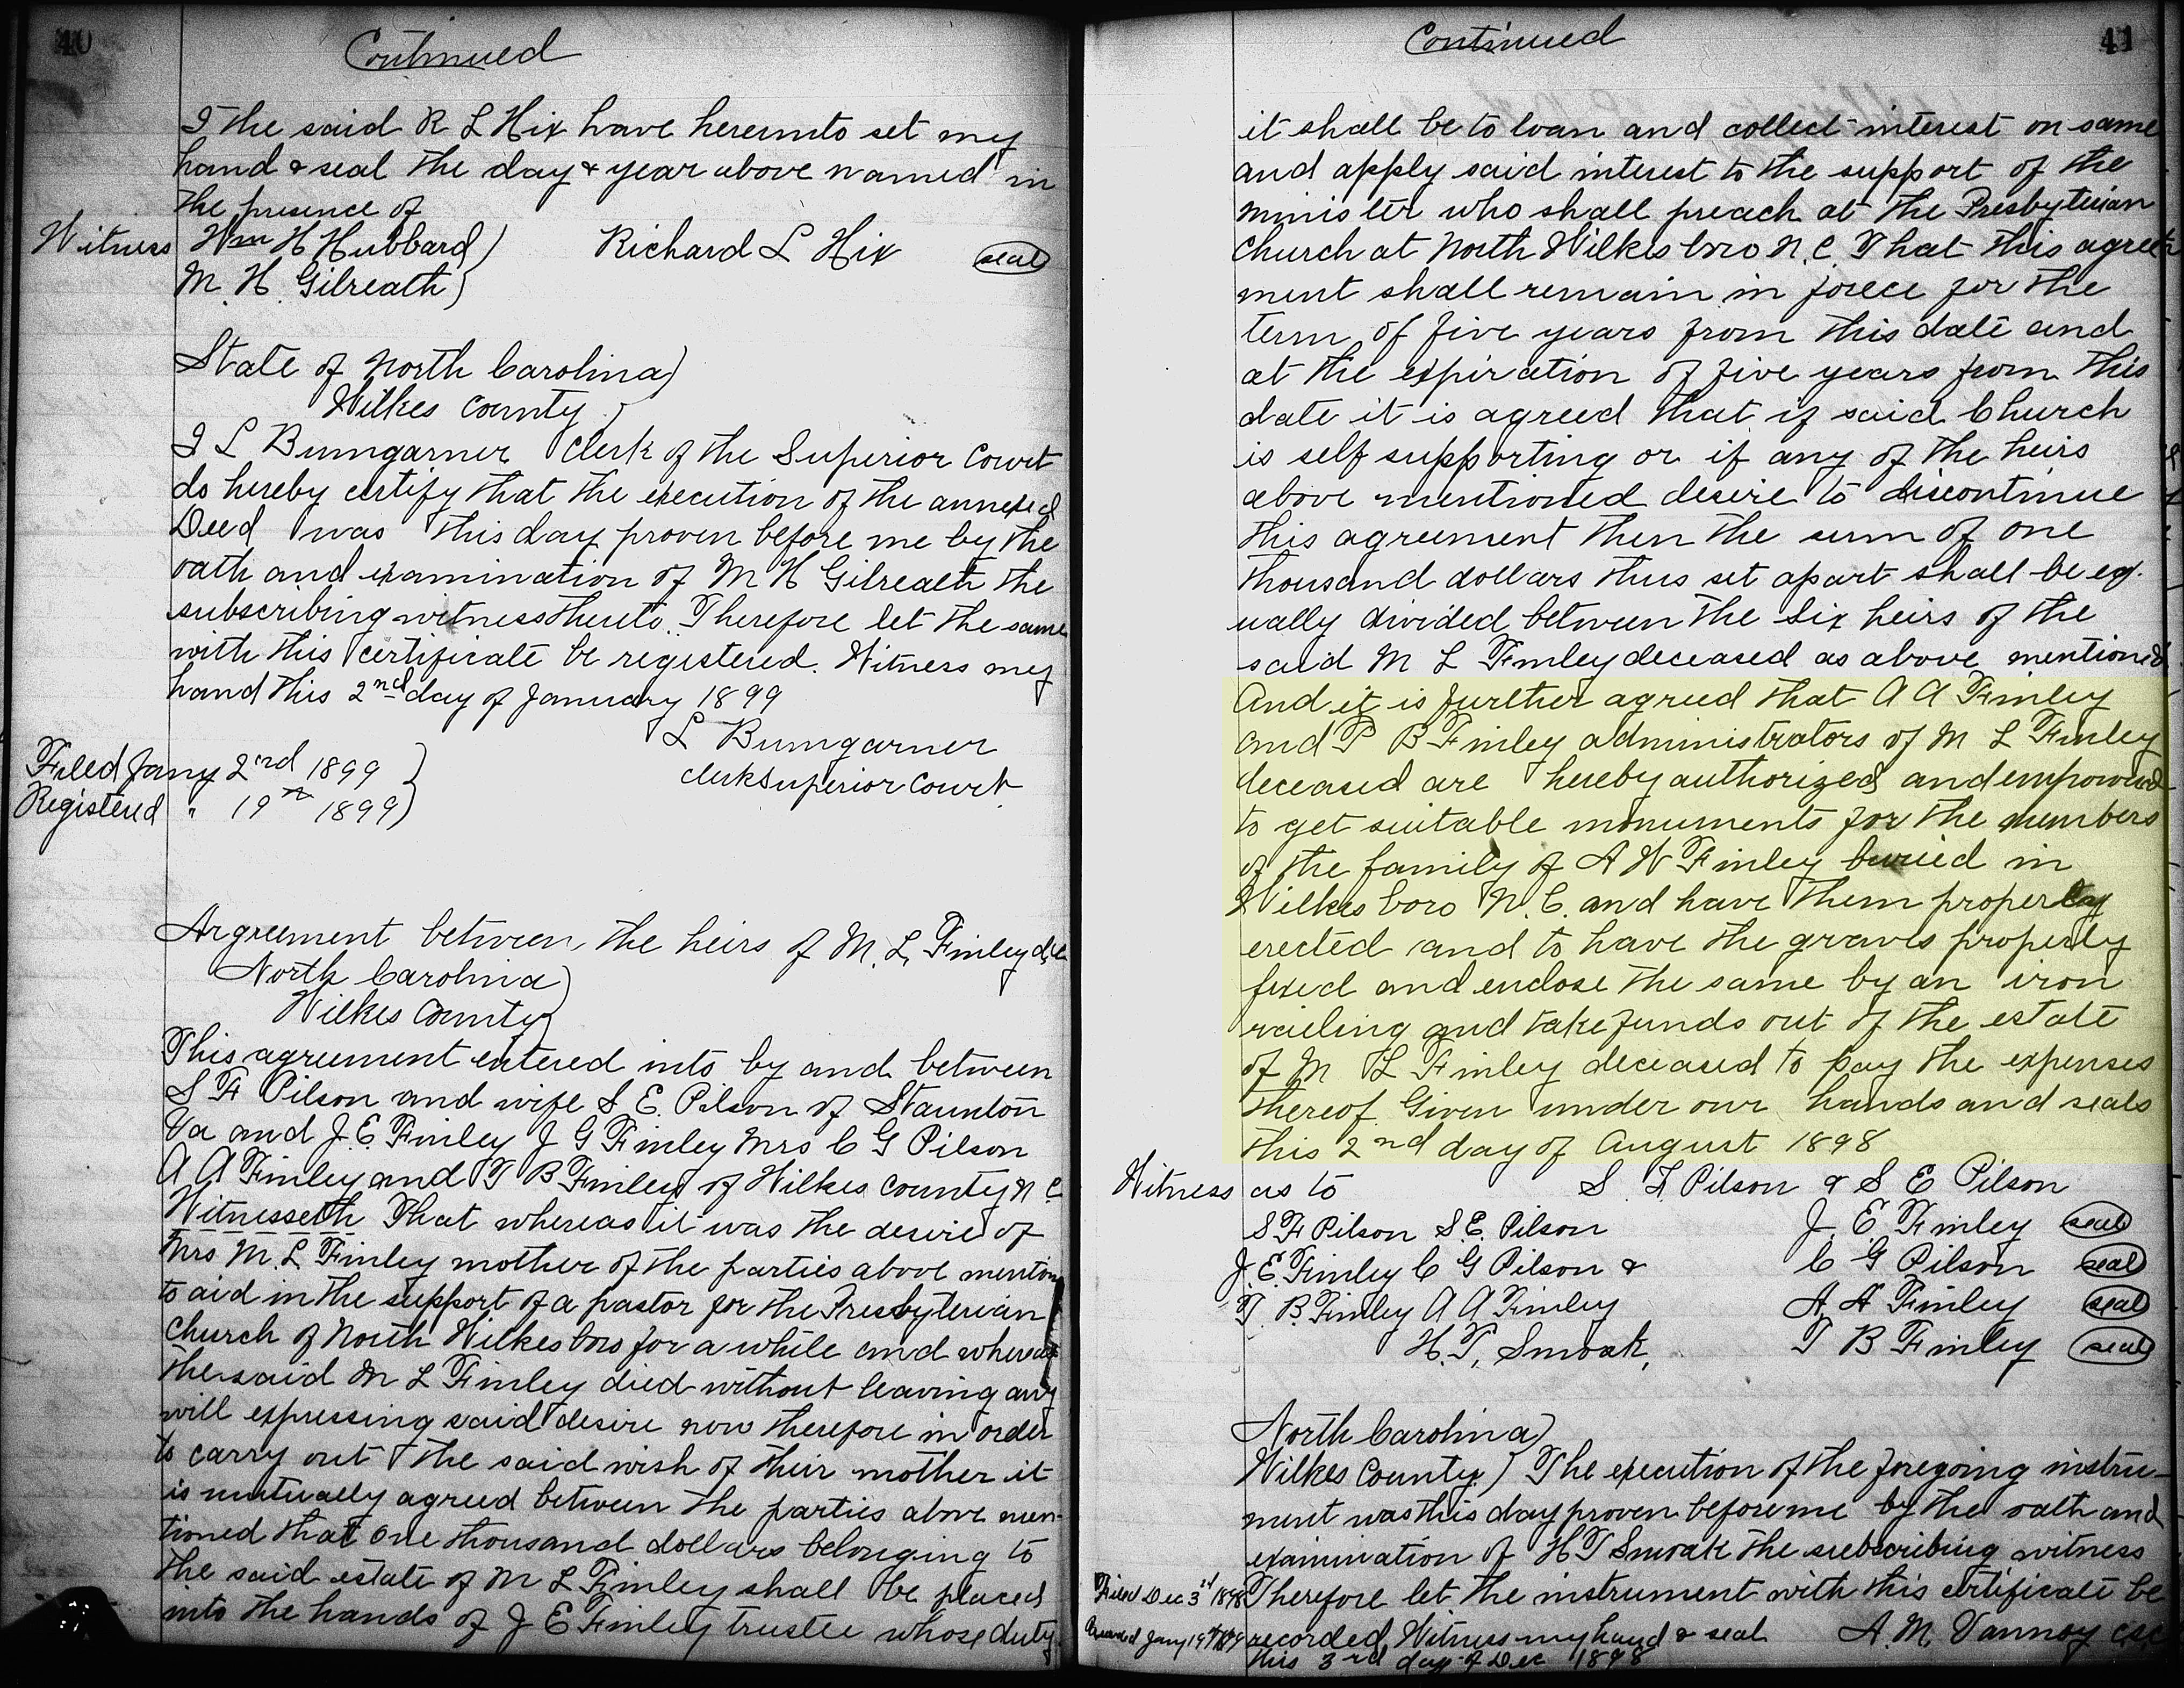 40
Continued
I the said R L Hix have hereunto set my
hand & seal the day & year above named in
the presence of
Witness Wm H Hubbard) Richard L Hix seal
M. H. Gilreath)
State of North Carolina)
Wilkes County )
I L Bumgarner Clerk of the Superior Court
do hereby certify that the execution of the annexed
Deed was this day proven before me by the
oath and examination of M H Gilreath the
subscribing witness thereto. Therefore let the same
with this certificate be registered. Witness my
hand this 2nd day of January 1899
L Bumgarner
Clerk Superior Court
Filed Jany 2nd 1899 }
Registered " 19th 1899)
Argreement between, the heirs of M. L. Finley dec
North Carolina)
Wilkes County)
This agreement entered into by and between
S F Pilson and wife S E. Pilson of Staunton
Va and J. E. Finley J G Finley Mrs C G Pilson
A A Finley and T B Finley of Wilkes County N C
Witnesseth That whereas it was the desire of
Mrs M. L Finley mother of the parties above mention
to aid in the support of a pastor for the Presbyterian
Church of North Wilkesboro for a while and whereas
the said M L Finley died without leaving any
will expressing said desire now therefore in order
to carry out the said wish of their mother it
is mutually agreed between the parties above men-
tioned that one thousand dollars belonging to
the said estate of M L Finley shall be placed
into the hands of J E Finley trustee whose duty
41
Continued
it shall be to loan and collect interest on same
and apply said interest to the support of the
minister who shall preach at the Presbyterian
Church at North Wilkesboro N. C. That this agree
ment shall remain in force for the
term of five years from this date and
at the expiration of five years from this
date it is agreed that if said Church
is self supporting or if any of the heirs
above mentioned desire to discontinue
this agreement then the sum of one
thousand dollars thus set apart shall be eq-
ually divided between the six heirs of the
said M L Finley deceased as above mentioned
And it is further agreed that A A Finley
and T B Finley administrators of M L Finley
deceased are hereby authorized and empowered
to get suitable monuments for the members
of the family of A W Finley buried in
Wilkesboro N. C. and have them properly
erected and to have the graves properly
fixed and enclose the same by an iron
railing and take funds out of the estate
of M L Finley deceased to pay the expenses
thereof. Given under our hands and seals
this 2nd day of August 1898
Witness as to S. F. Pilson & S E Pilson
S F Pilson S. E. Pilson J. E. Finley seal
J. E. Finley C G Pilson & C G Pilson seal
T. B. Finley A A Finley A. A Finley seal
H. T. Smoak, T B Finley seal
North Carolina)
Wilkes County.) The execution of the foregoing instru-
ment was this day proven before me by the oath and
examination of H T Smoak the subscribing witness
Filed Dec 3rd 1898 Therefore let the instrument with this certificate be
Jany 19th 1899 recorded, Witness my hand & seal A. M. Vannoy CSC
this 3rd day of Dec 1898